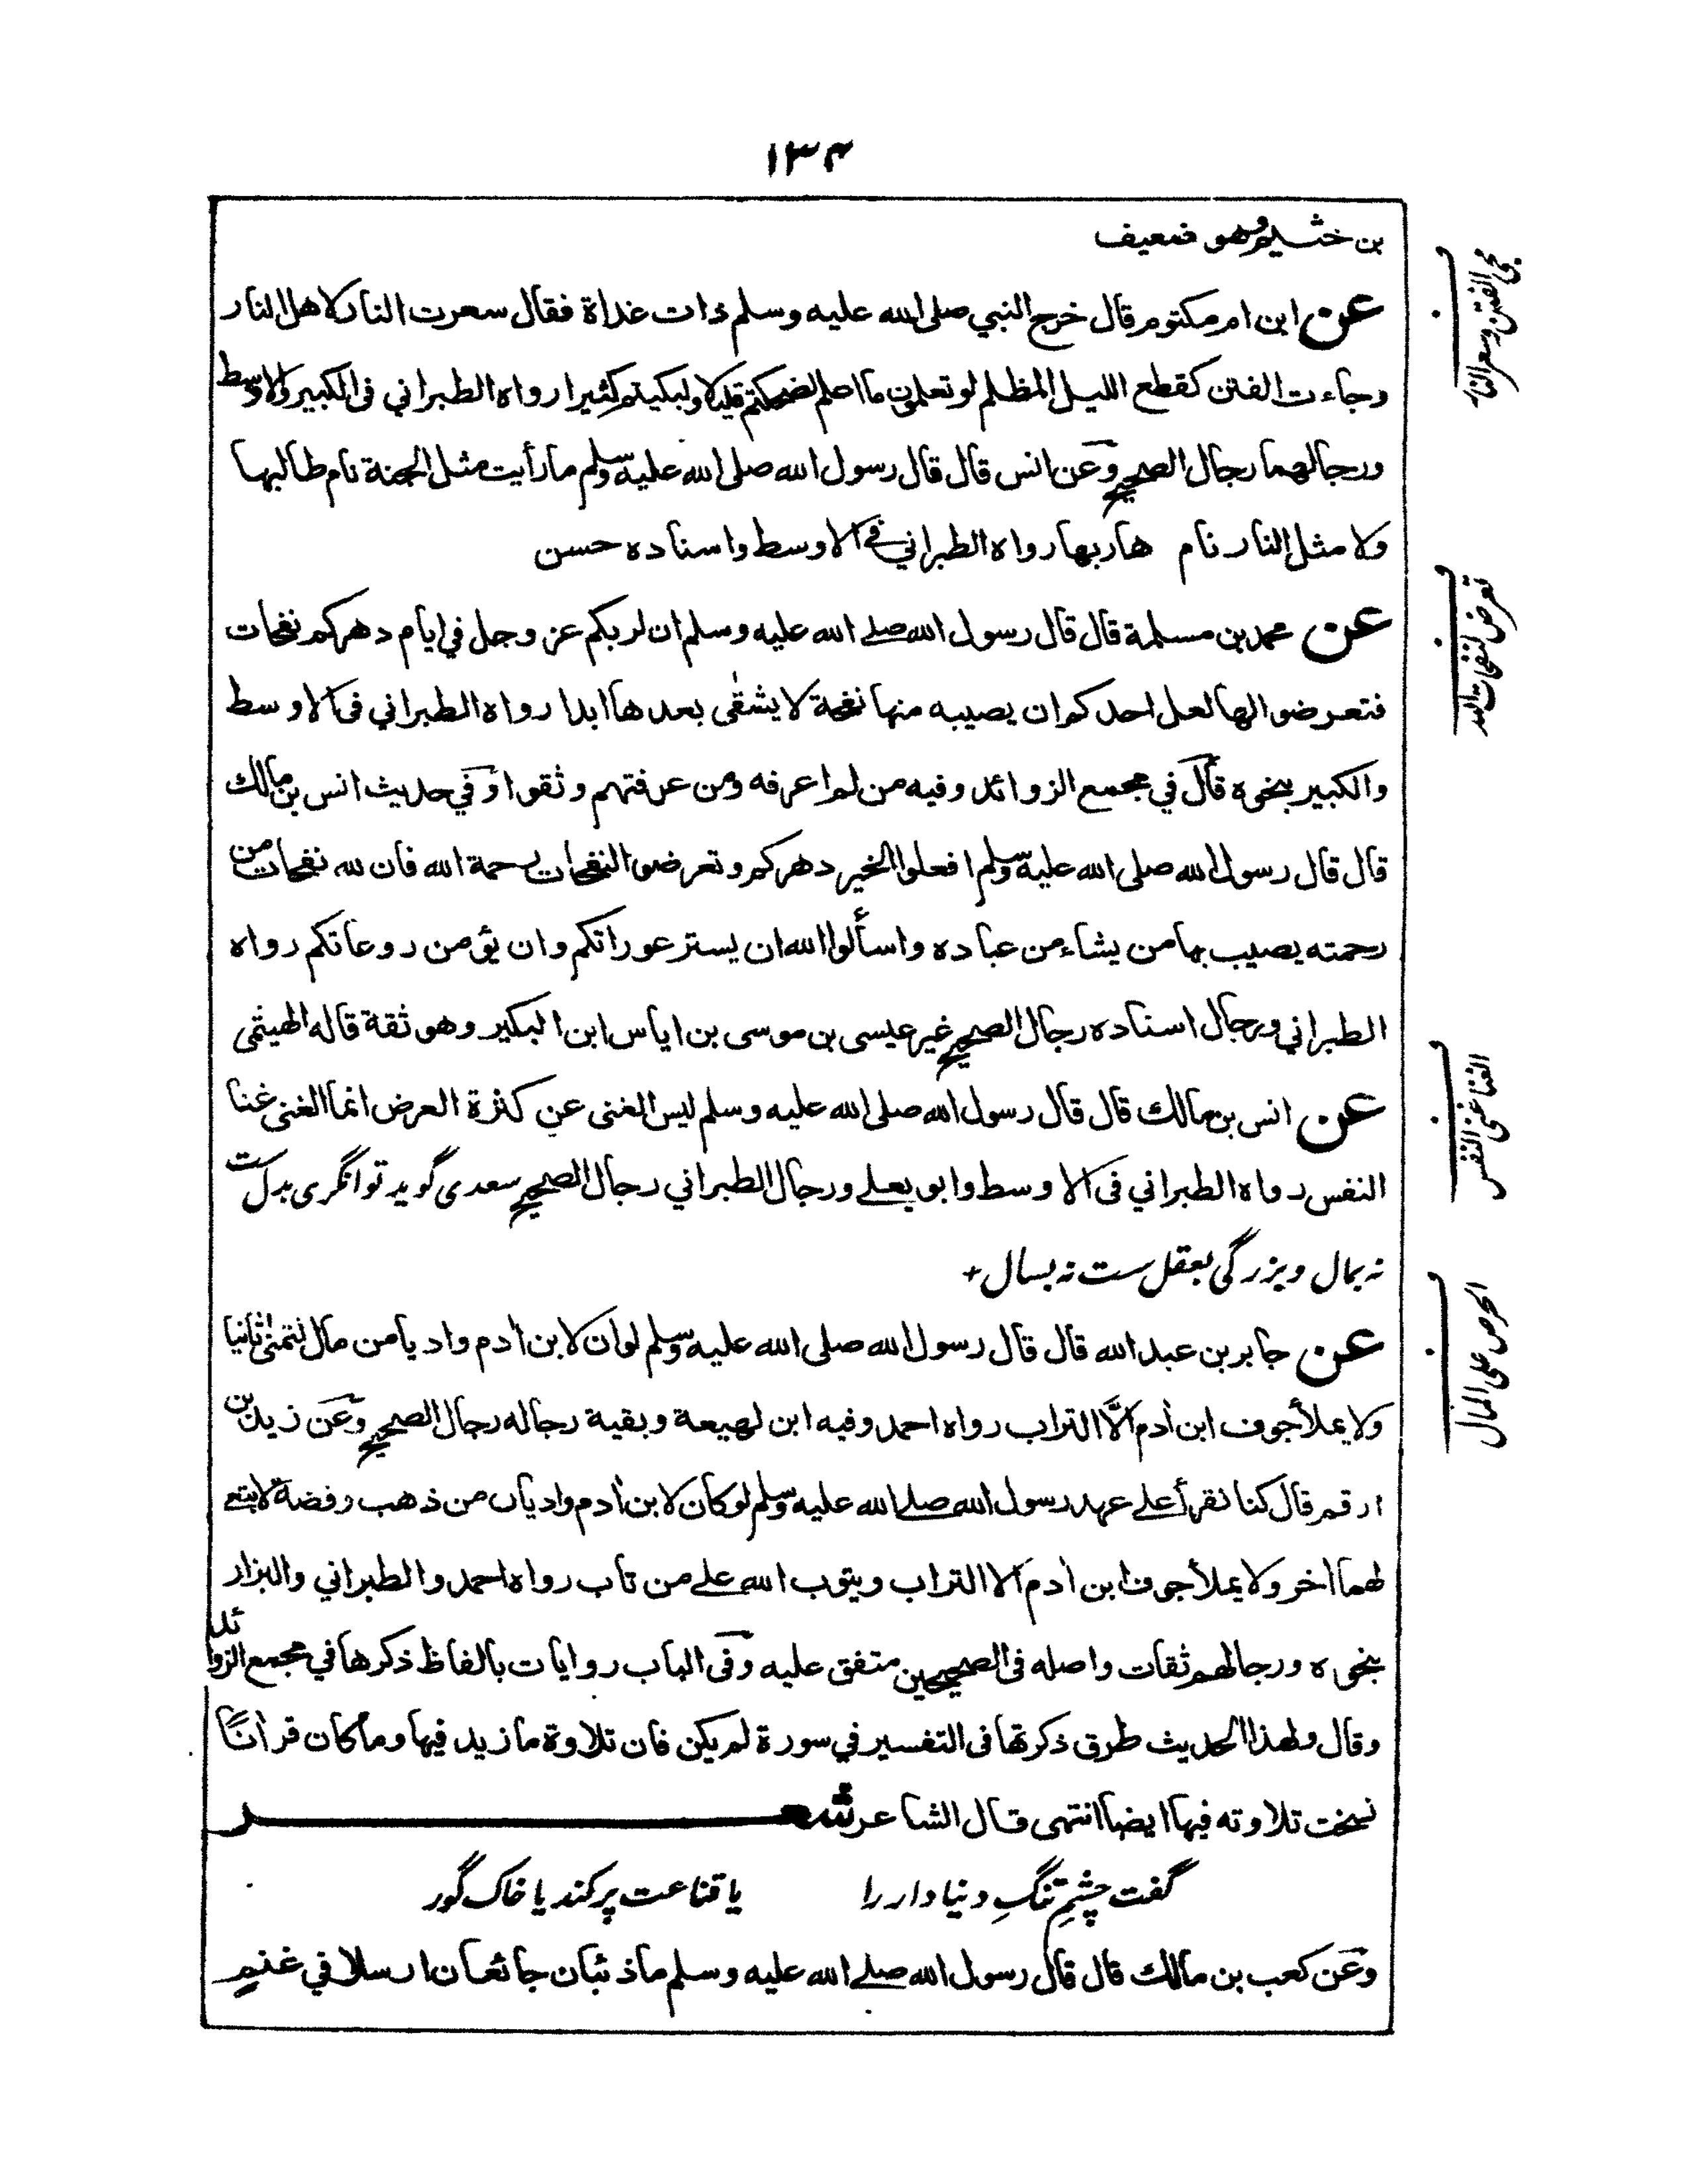 ١٣٤
بن خثيم وهو ضعيف
عن ابن ام مكتوم قال خرج النبي صلى الله عليه وسلم ذات غداة فقال سعرت النار لاهل النار
وجاءت الفتن كقطع الليل المظلم لو تعلمون ما اعلم لضحكتم قليلا ولبكيتم كثيرا رواه الطبراني فى الكبير والاوسط
ورجالهما رجال الصحيح وعن انس قال قال رسول الله صلى الله عليه وسلم ما رأيت مثل الجنة نام طالبها
ولا مثل النار نام هاربها رواه الطبراني في الاوسط واسناده حسن
عن محمد بن مسلمة قال قال رسول الله صلے الله عليه وسلم ان لربكم عز وجل في ايام دهركم نفحات
فتعرضوا لها لعل احدكم ان يصيبه منها نفحة لا يشقى بعدها ابدا رواه الطبراني فى الاوسط
والكبير بنحوه قال في مجمع الزوائد وفيه من لم اعرفه ومن عرفتهم وثقوا وفي حديث انس بن مالك
قال قال رسول الله صلى الله عليه وسلم افعلوا الخير دهركم وتعرضوا النفحات رحمة الله فان لله نفحات من
رحمته يصيب بها من يشاء من عباده واسألوا الله ان يستر عوراتكم وان يؤمن روعاتكم رواه
الطبراني ورجال اسناده رجال الصحيح غير عيسى بن موسى بن اياس ابن البكير وهو ثقة قاله الهيثمى
عن انس بن مالك قال قال رسول الله صلى الله عليه وسلم ليس الغنى عن كثرة العرض انما الغنى غنا
النفس رواه الطبراني فى الاوسط وابو يعلے ورجال الطبراني رجال الصحيح سعدى گويد توانگرى بدل ست
نه بمال وبزرگى بعقل ست نه بسال +
عن جابر بن عبد الله قال قال رسول الله صلى الله عليه وسلم لو ان لابن اٰدم واديا من مال لتمنى ثانيا
ولا يملأ جوف ابن اٰدم الَّا التراب رواه احمد وفيه ابن لهيعة وبقية رجاله رجال الصحيح وعن زيد بن
ارقم قال كنا نقرأ علے عهد رسول الله صلے الله عليه وسلم لو كان لابن اٰدم واديان من ذهب وفضة لابتغے
لهما اٰخر ولا يملأ جوف ابن اٰدم الا التراب ويتوب الله علے من تاب رواه احمد والطبراني والبزار
بنحوه ورجالهم ثقات واصله فى الصحيحين متفق عليه وفى الباب روايات بالفاظ ذكرها في مجمع الزوائد
وقال ولهذا الحديث طرق ذكرتها فى التفسير في سورة لم يكن فان تلاوة ما زيد فيها وما كان قراٰنًا
نسخت تلاوته فيها ايضا انتهى قال الشاعر شعر
گفت چشمِ تنگِ دنيا دار را يا قناعت پر كند يا خاک گور
وعن كعب بن مالك قال قال رسول الله صلے الله عليه وسلم ما ذئبان جائعان ارسلا في غنم
مجى الفتن وسعر النار
تعرض لنفحات الله
الغنا غنى النفس
الحرص على المال